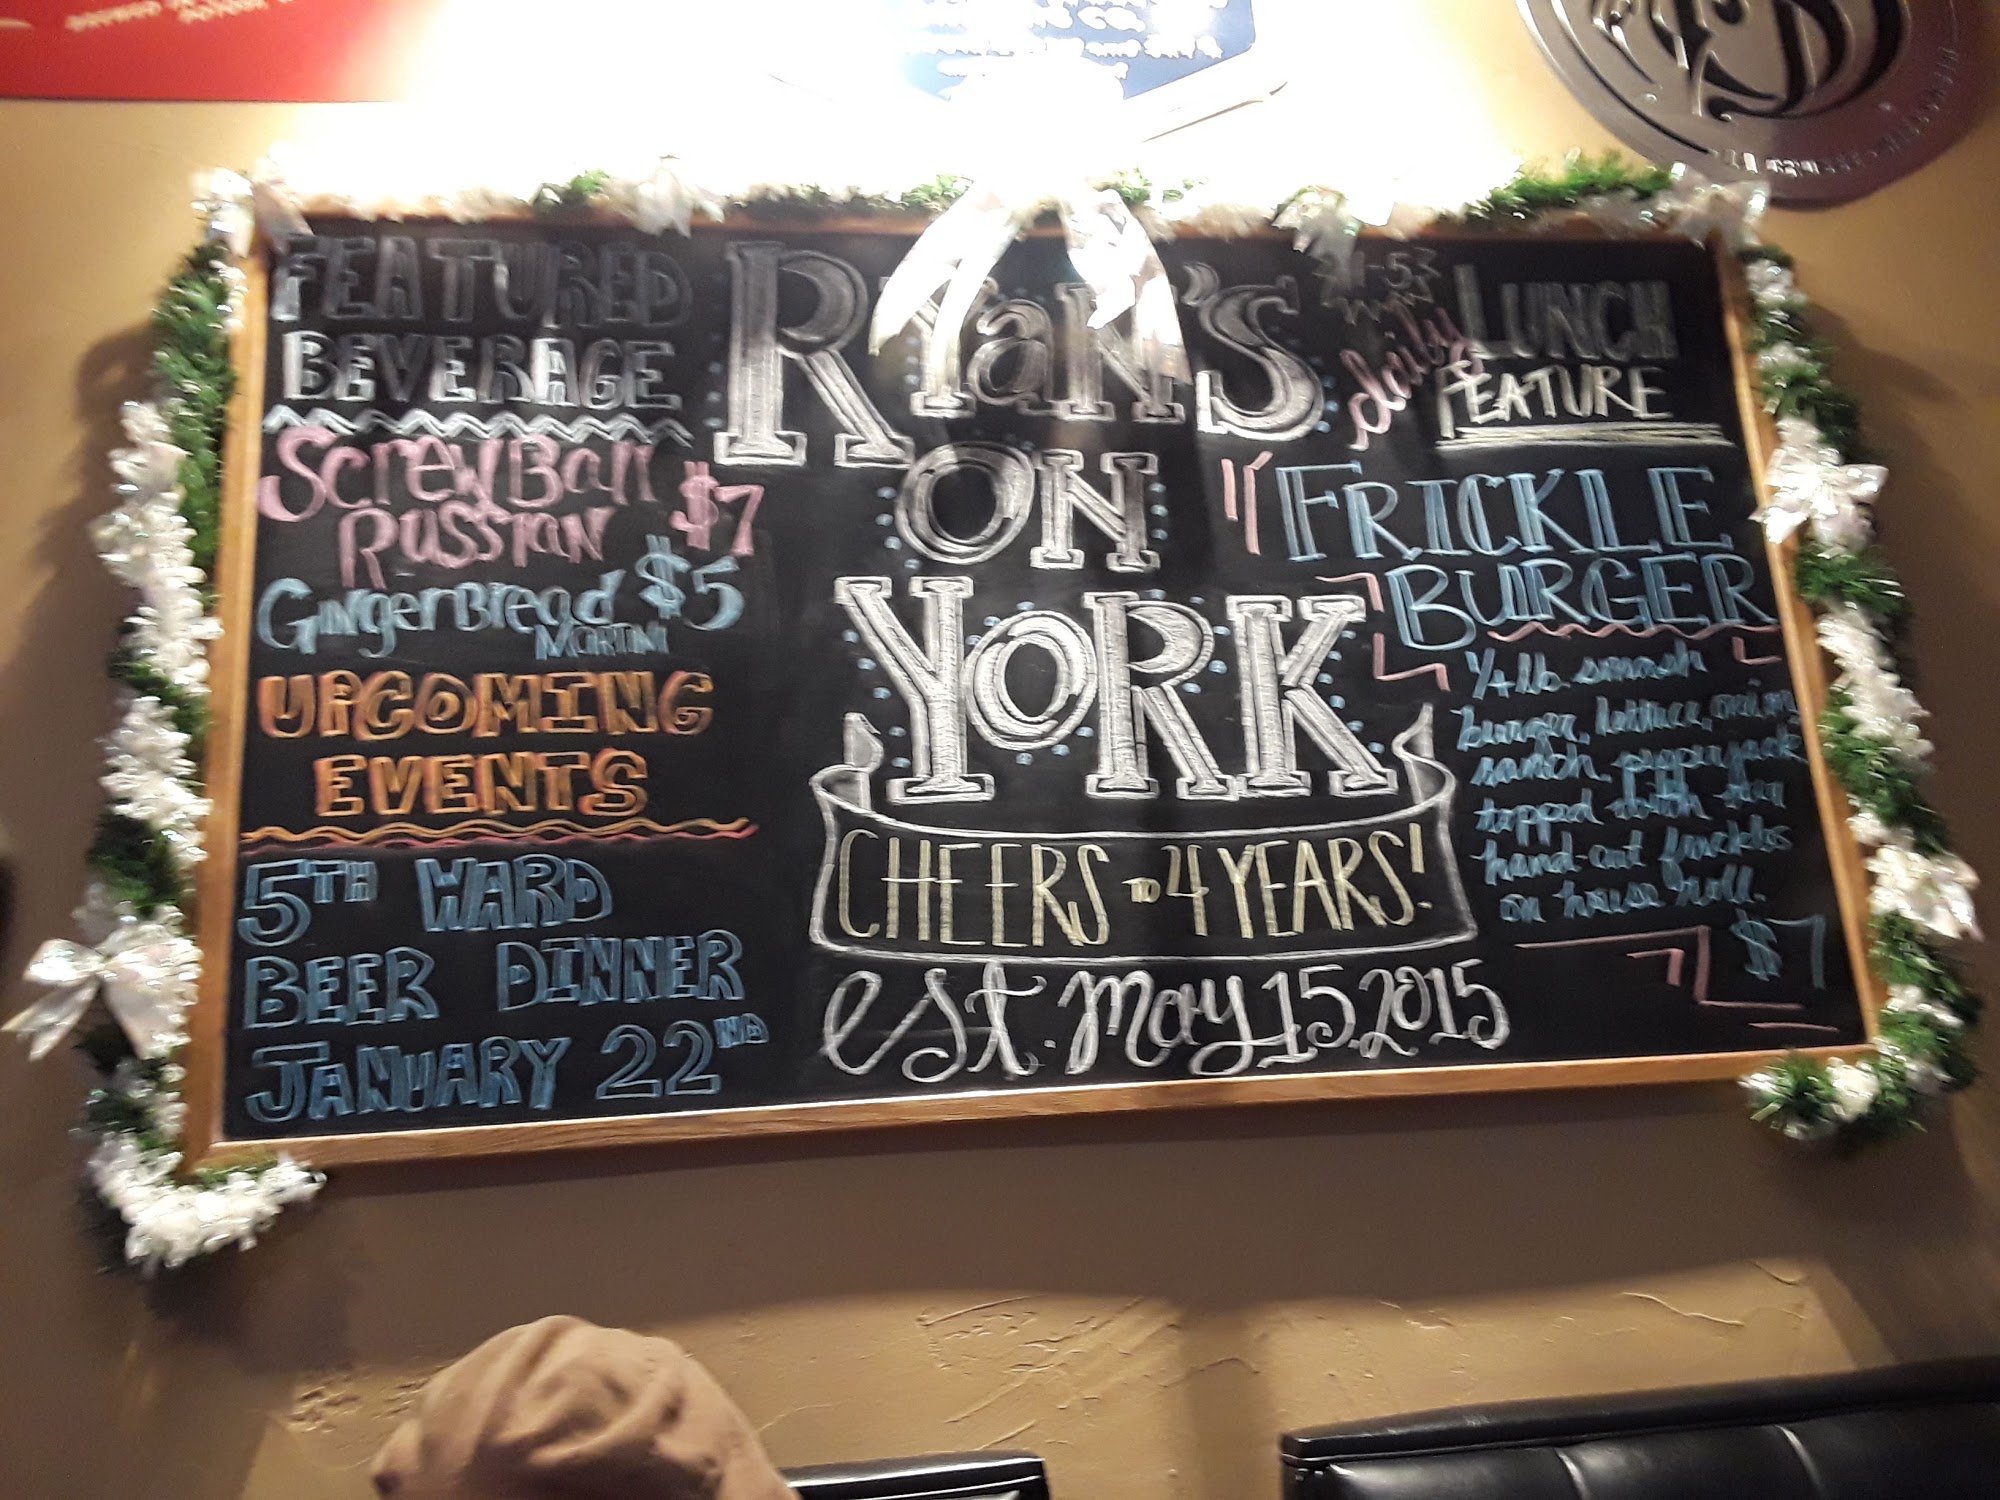 FEATURED
BEVERAGE
SCREWBALL
RUSSIAN $7
GINGERBREAD $5
MARTINI
UPCOMING
EVENTS
5TH WARD
BEER DINNER
JANUARY 22ND
RYAN'S
ON
YORK
CHEERS TO 4 YEARS!
est. May 15. 2015
daily
LUNCH
FEATURE
FRICKLE
BURGER
1/4 lb. smash
burger, lettuce, onion,
ranch, pepperjack
topped with
hand-cut frickles
on house roll.
$7